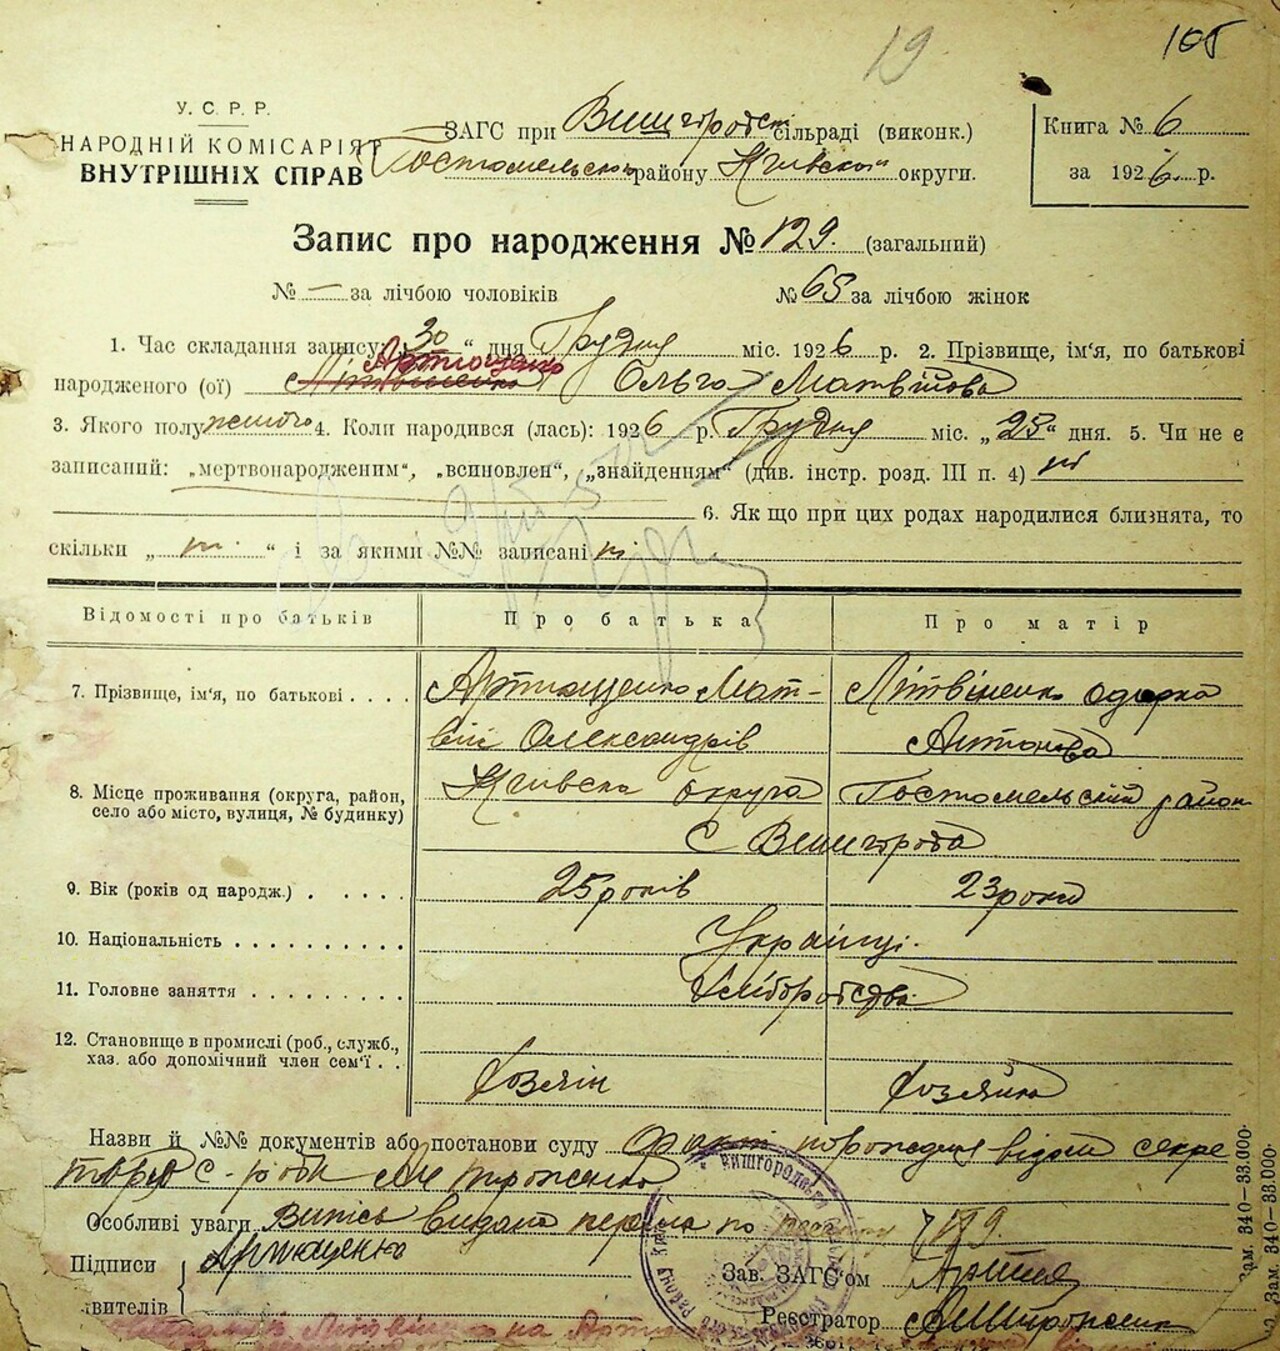 19
105
У. С. Р. Р.
НАРОДНІЙ КОМІСАРІЯТ
ВНУТРІШНІХ СПРАВ
ЗАГС при Вишгородск сільраді (виконк.)
Гостомельском району Київской округи.
Книга № 6
за 1926 р.
Запис про народження № 129. (загальний)
№ — за лічбою чоловіків
№ 65 за лічбою жінок
1. Час складання запису: „30“ дня Грудня міс. 1926 р. 2. Прізвище, ім'я, по батькові
Артющенко
народженого (ої) Літвіненко Ольга Матвійова
3. Якого полу жіного 4. Коли народився (лась): 1926 р. Грудня міс. „25“ дня. 5. Чи не є
записаний: „мертвонародженим“, „всиновлен“, „знайденням“ (див. інстр. розд. III п. 4) ні
6. Як що при цих родах народилися близнята, то
скільки „ ні “ і за якими №№ записані ні
Відомості про батьків
Про батька
Про матір
7. Прізвище, ім'я, по батькові . . . .
Артющенко Мат-
вій Олександрів
Літвіненко Одарка
Антонова
8. Місце проживання (округа, район,
село або місто, вулиця, № будинку)
Київска округа Гостомельский район
с Вишгород
9. Вік (років од народж.) . . . . .
25 років
23 роки
10. Національність . . . . . . . . . .
Українці.
11. Головне заняття . . . . . . . . .
Хліборобство
12. Становище в промислі (роб., служб.,
хаз. або допомічний член сем'ї . .
Хозяін
Хозяйка
Назви й №№ документів або постанови суду Факт породження відом секре
таред с-ради Митроженко
Особливі уваги Випісь видана перша по
Підписи
вителів
Артющенко
Зав. ЗАГС'ом
Реєстратор
Зам. 340—33.000.
Зам. 340—33.000.